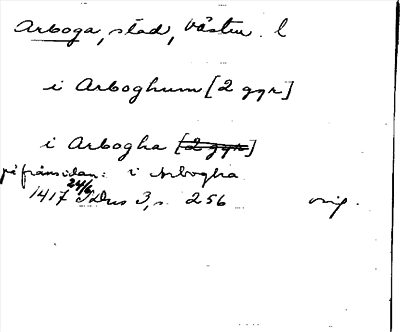 Arboga, stad, Västm. l
i Arboghum [2 ggr]
i Arbogha [2 ggr]
på framsidan: i Arbogha
1417 24/6 SDns 3, s. 256 orig.